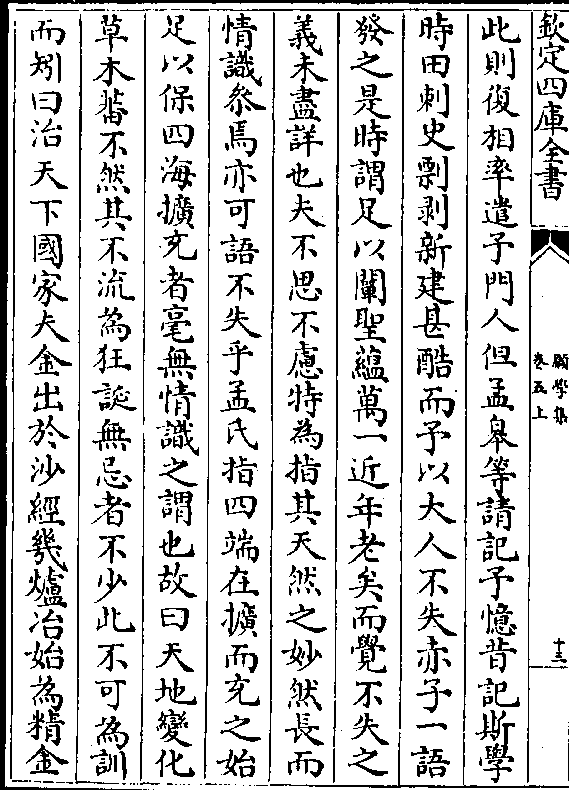 欽定四庫全書
願學集
卷五上
十三
此則復相率遣子門人但孟皋等請記予憶昔記斯學
時田刺史剽剥新建甚酷而予以大人不失赤子一語
發之是時謂足以闡聖藴萬一近年老矣而覺不失之
義未盡詳也夫不思不慮特為指其天然之妙然長而
情識叅焉亦可語不失乎孟氏指四端在擴而充之始
足以保四海擴充者毫無情識之謂也故曰天地變化
草木蕃不然其不流為狂誕無忌者不少此不可為訓
而矧曰治天下國家夫金出於沙經幾爐冶始為精金